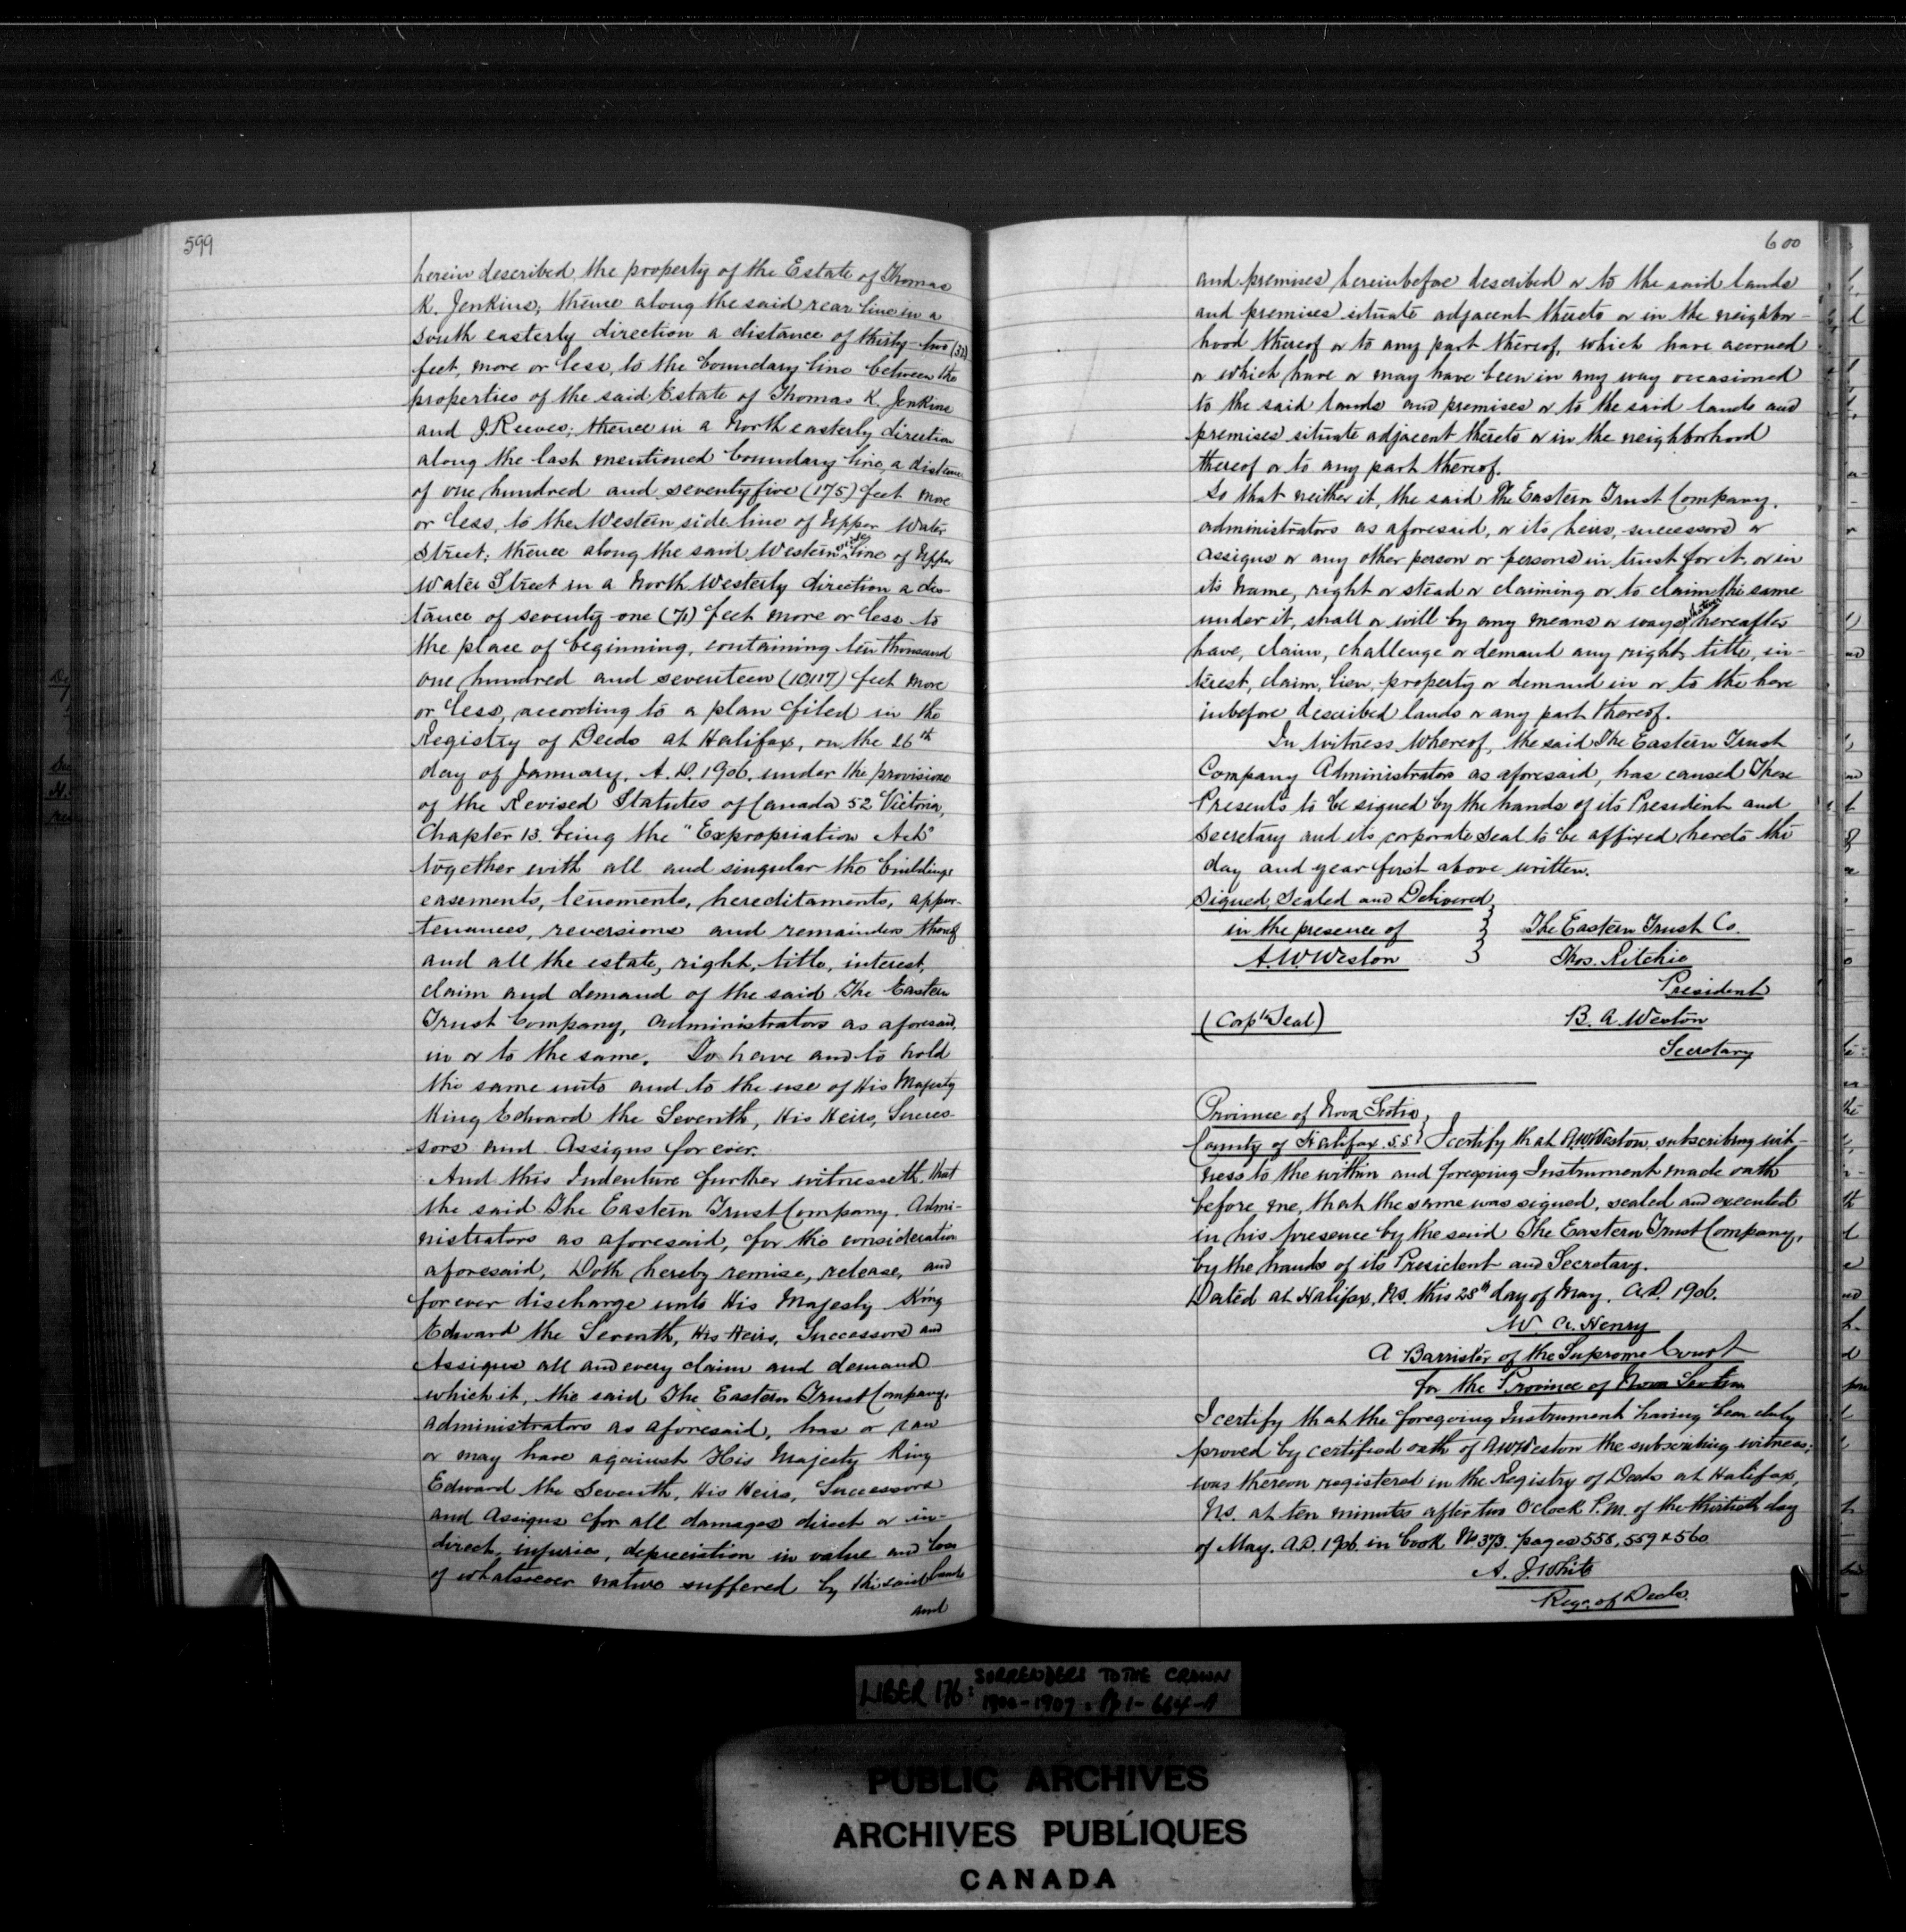 599
herein described the property of the Estate of Thomas
K. Jenkins; thence along the said rear line in a
south easterly direction a distance of thirty-two (32)
feet, more or less, to the boundary line between the
properties of the said Estate of Thomas K. Jenkins
and J. Reeves; thence in a North easterly direction
along the last mentioned boundary line, a distance
of one hundred and seventy five (175) feet more
or less, to the Western side line of Upper Water
Street; thence along the said Western side line of Upper
Water Street in a North Westerly direction a dis-
tance of seventy-one (71) feet more or less to
the place of beginning, containing ten thousand
one hundred and seventeen (10,117) feet more
or less, according to a plan filed in the
Registry of Deeds at Halifax, on the 26th
day of January, A.D. 1906, under the provisions
of the Revised Statutes of Canada 52 Victoria,
Chapter 13. being the "Expropriation Act"
together with all and singular the buildings
easements, tenements, hereditaments, appur-
tenances, reversions and remainders thereof
and all the estate, right, title, interest,
claim and demand of the said The Eastern
Trust Company, Administrators as aforesaid,
in or to the same. To have and to hold
the same unto and to the use of His Majesty
King Edward the Seventh, His Heirs, Succes-
sors and Assigns for ever.
And this Indenture further witnesseth that
the said The Eastern Trust Company. Admi-
nistrators as aforesaid, for the consideration
aforesaid, Doth hereby remise, release, and
for ever discharge unto His Majesty King
Edward the Seventh, His Heirs, Successors and
Assigns all and every claim and demand
which it, the said The Eastern Trust Company,
administrators as aforesaid, has or can
or may have against His Majesty King
Edward the Seventh, His Heirs, Successors
and Assigns for all damages direct or in-
direct, injuries, depreciation in value and loss
of whatsoever nature suffered by the said lands
and
600
and premises hereinbefore described or to the said lands
and premises situate adjacent thereto or in the neighbor-
hood thereof or to any part thereof, which have accrued
or which have or may have been in any way occasioned
to the said lands and premises or to the said lands and
premises situate adjacent thereto or in the neighborhood
thereof or to any part thereof.
So that neither it, the said The Eastern Trust Company.
administrators as aforesaid, or its heirs, successors or
assigns or any other person or persons in trust for it, or in
its name, right or stead or claiming or to claim the same
under it, shall or will by any means or ways hereafter
have, claim, challenge or demand any right, title, in-
terest, claim, lien, property or demand in or to the here
inbefore described lands or any part thereof.
In Witness Whereof, the said The Eastern Trust
Company Administrators as aforesaid, has caused These
Presents to be signed by the hands of its President and
Secretary and its corporate seal to be affixed hereto the
day and year first above written.
Signed, Sealed and Delivered
in the presence of } The Eastern Trust Co.
A.W. Weston } Thos. Ritchie
President
(Corp'tn Seal) B. A. Weston
Secretary
Province of Nova Scotia,
County of Halifax. S.S. } I certify that A.W. Weston, subscribing wit-
ness to the within and foregoing Instrument made oath
before me, that the same was signed, sealed and executed
in his presence by the said The Eastern Trust Company,
by the hands of its President and Secretary.
Dated at Halifax, N.S. this 28th day of May. A.D. 1906.
W. A. Henry
A Barrister of the Supreme Court
for the Province of Nova Scotia
I certify that the foregoing Instrument having been duly
proved by certified oath of A.W. Weston the subscribing witness,
was thereon registered in the Registry of Deeds at Halifax,
N.S. at ten minutes after two O'clock P.M. of the thirtieth day
of May. A.D. 1906. in book No. 373. pages 558, 559 & 560
A. J. White
Regr. of Deeds.
LIBER 176: SURRENDERS TO THE CROWN
1900-1907: Pp 1-664-A
PUBLIC ARCHIVES
ARCHIVES PUBLIQUES
CANADA